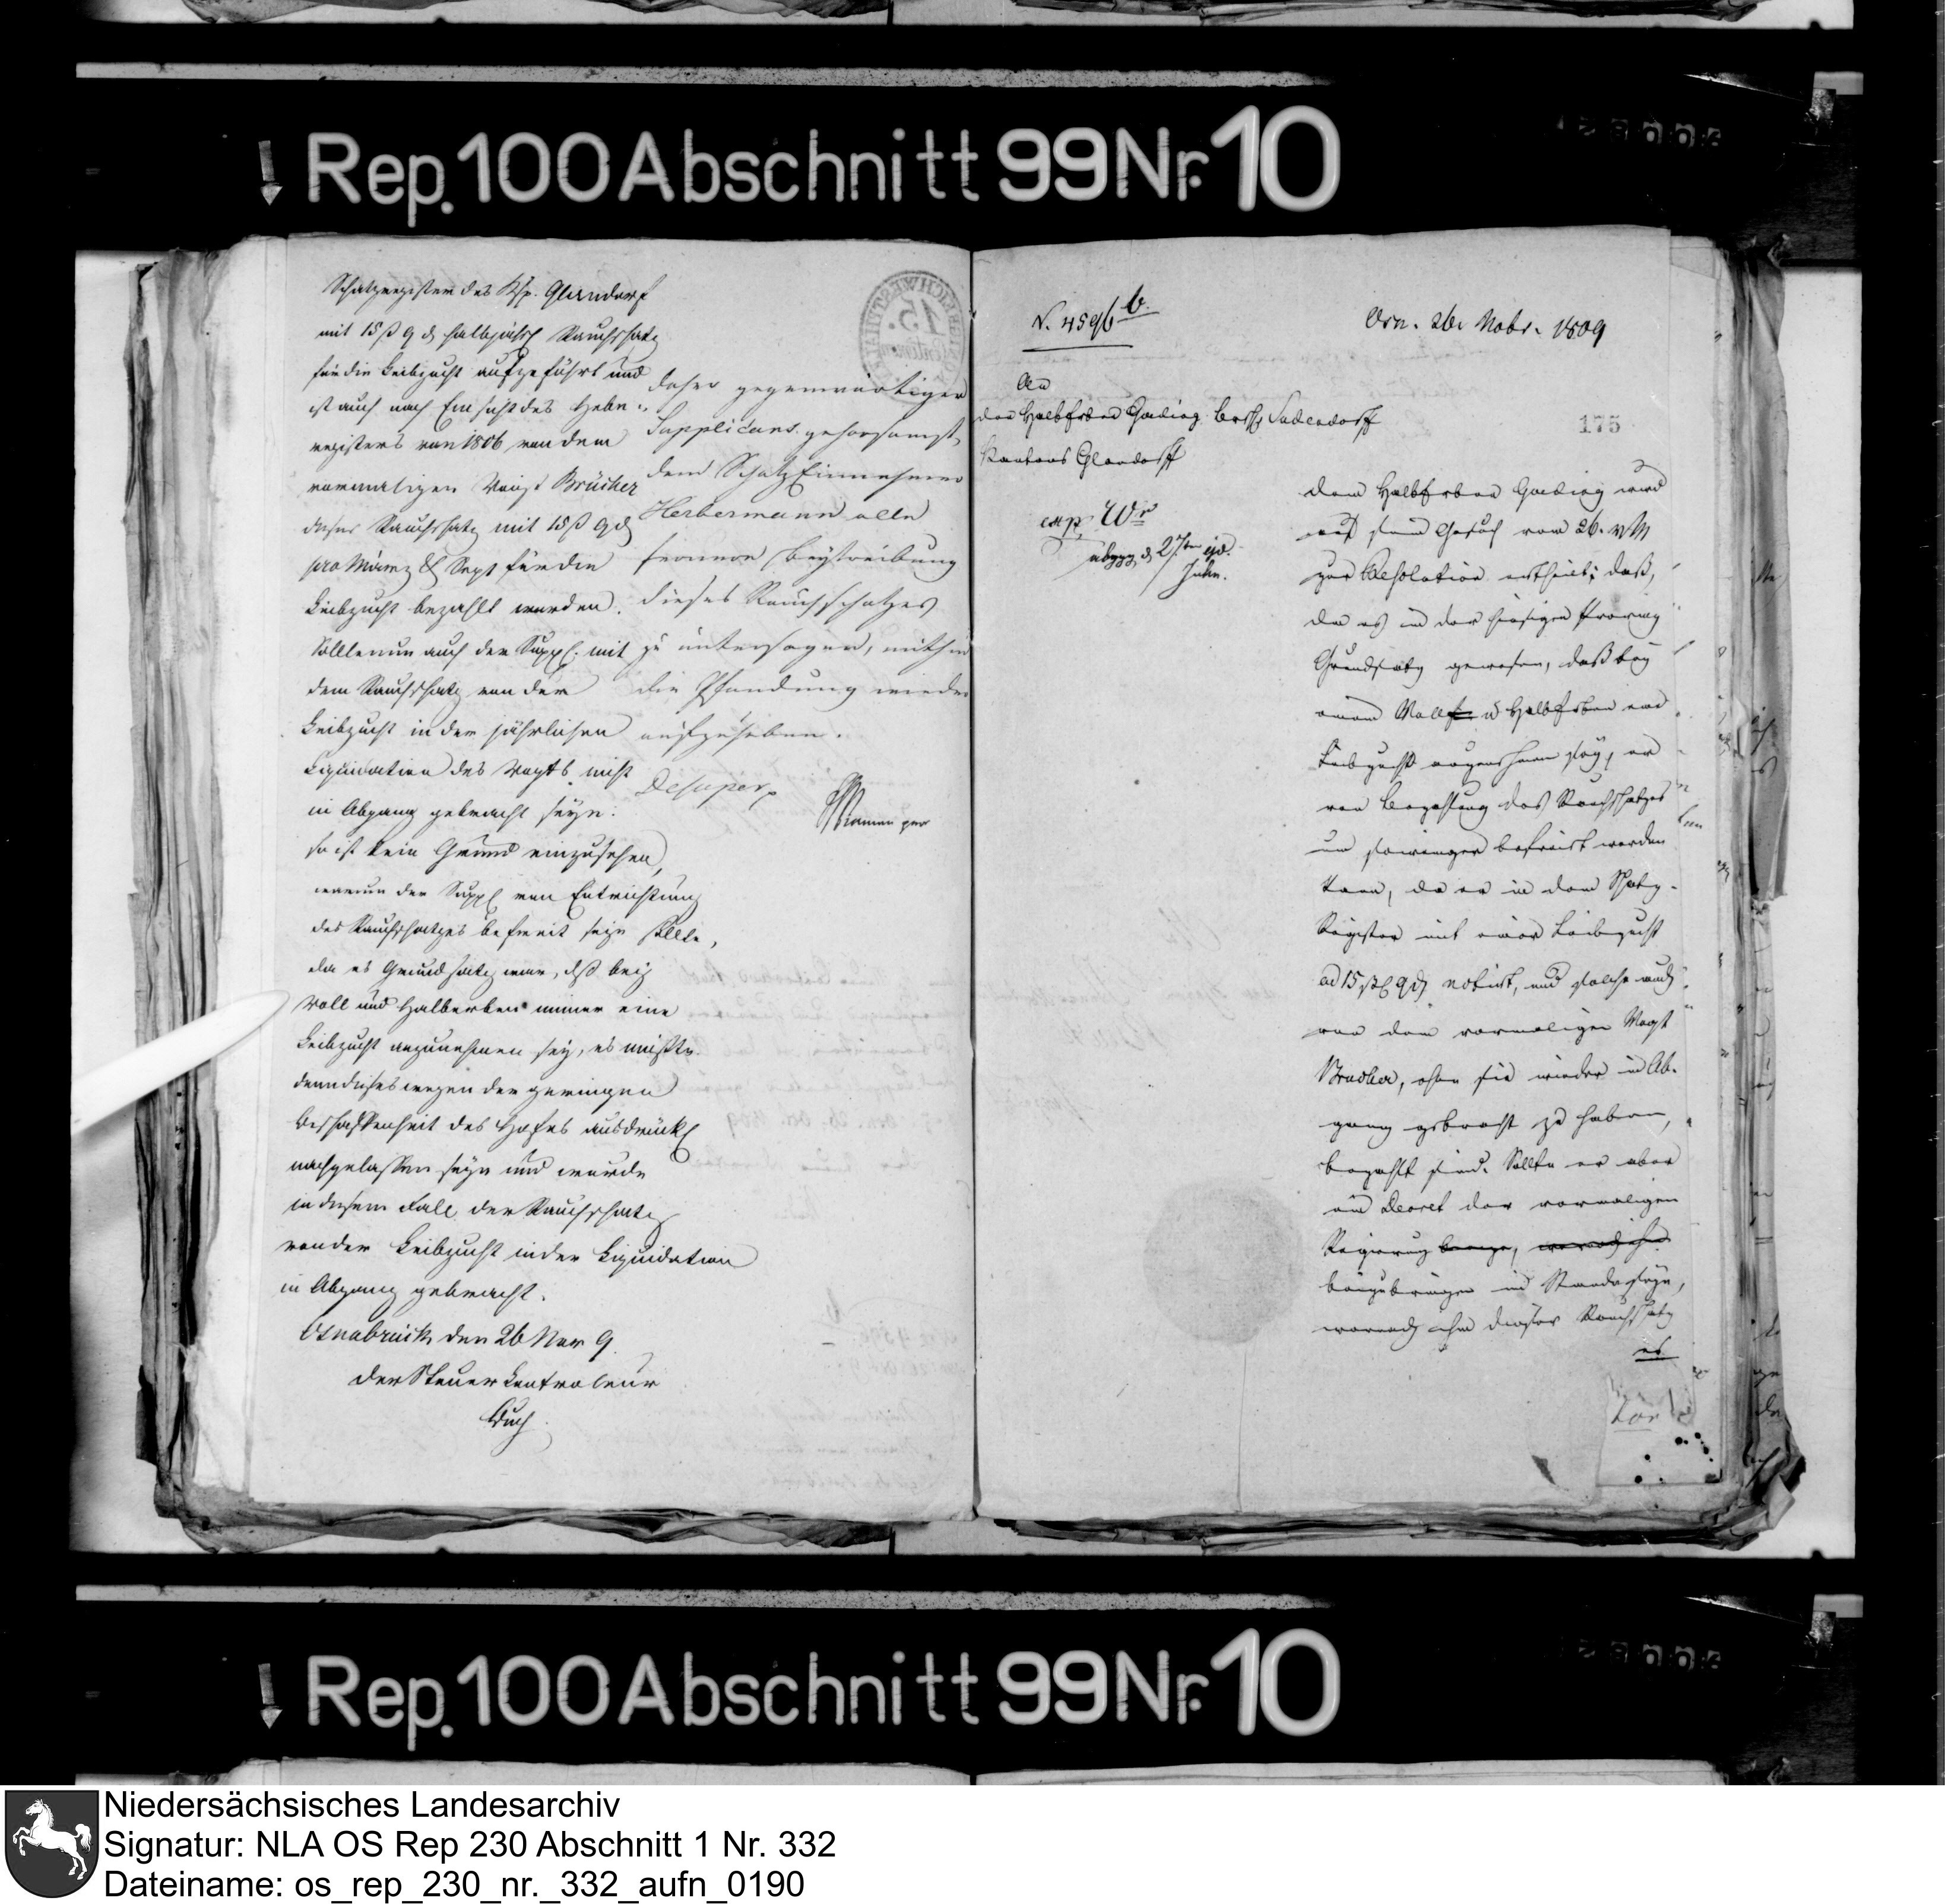 Rep. 100 Abschnitt 99 Nr. 10
Schatzregister des Ksp. Glandorf
mit 15 ß 9 d halbjährl Rauchschatz
für die Leibzucht aufgeführt und
ist auch nach Einsicht des Hebe-
registers von 1806 von dem
vormaligen Voigt Brücher
dieser Rauchschatz mit 15 ß 9 d
pro März & Sept für die
Leibzucht bezahlt worden.
Sollte nun auch der Suppl. mit
dem Rauchschatz von der
Leibzucht in der jährlichen
Liquidation des Vogts nicht
in Abgang gebracht seyn:
so ist kein Grund einzusehen,
warum der Suppl von Entrichtung
des Rauchschatzes befreit seyn sollte,
da es Grundsatz war, daß bey
Voll und Halberben immer eine
Leibzucht anzunehmen sey, es müßte
denn dieses wegen der geringen
Beschaffenheit des Hofes ausdrückl
nachgelassen seyn und wurde
in diesem Fall der Rauchschatz
von der Leibzucht in der Liquidation
in Abgang gebracht.
Osnabrück den 26 Nov 9
Der Steuer Controleur
daher gegenwärtiger
Supplicans gehorsamst,
dem Schatz Einnehmer
Herbermann alle
fernere Beytreibung
dieses Rauchschatzes
zu untersagen, mithin
die Pfändung wieder
aufzuheben.
Desuper
N. 4596 b.
Osn. 26 Nobr. 1809
An
den Halberben Gading Brsch Sudendorff
Kantons Glandorff
175
exp. Wr
abggg d 27ten ejd.
Dem Halberben Gading wird
auf sein Gesuch vom 26. v M
zur Resolution ertheilt; daß,
da es in der hiesigen Provinz
Grundsatz gewesen, daß bey
einem Voll u Halberben eine
Leibzucht anzunehmen sey, er
von Bezahlung des Rauchschatzes
um so weniger befreit werden
kann, da er in dem Schatz-
Register mit einer Leibzucht
ad 15 ß 9 d notirt, und solche auch
von dem vormaligen Vogt
Brucher, ohne sie wieder in Ab-
gang gebracht zu haben,
bezahlt sind. Sollte er aber
ein Decret der vormaligen
Regierung
beizubringen im Stande seyn,
wornach ihm dieser Rauchschatz
es
Rep. 100 Abschnitt 99 Nr. 10
Niedersächsisches Landesarchiv
Signatur: NLA OS Rep 230 Abschnitt 1 Nr. 332
Dateiname: os_rep_230_nr._332_aufn_0190